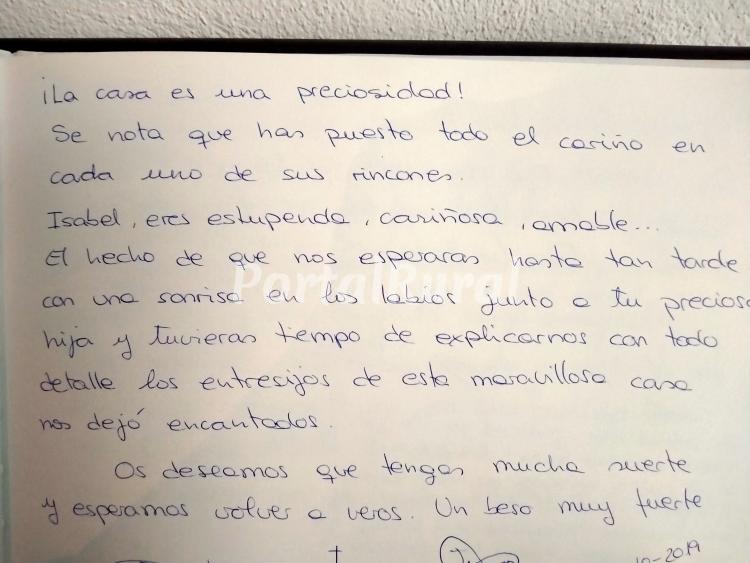 ¡La casa es una preciosidad!
Se nota que has puesto todo el cariño en
cada uno de sus rincones.
Isabel, eres estupenda, cariñosa, amable...
El hecho de que nos esperaras hasta tan tarde
con una sonrisa en los labios junto a tu preciosa
hija y tuvieras tiempo de explicarnos con todo
detalle los entresijos de esta maravillosa casa
nos dejó encantados.
Os deseamos que tengas mucha suerte
y esperamos volver a veros. Un beso muy fuerte
10-2019
PortalRural